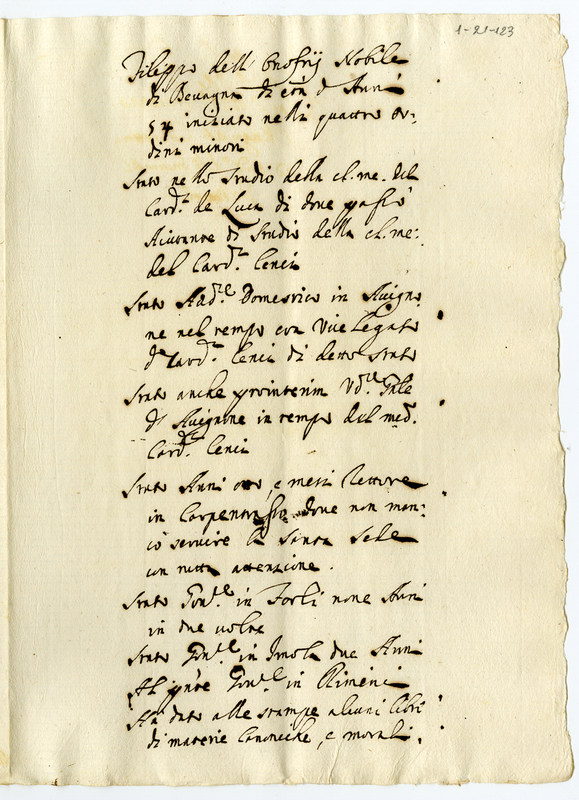 1-21-123
Filippo dell' Onofrij Nobile
di Bevagna di età d' Anni
54 iniziato nelli quattro or:
dini minori
Stato nello studio della ch. me. del
Card.l de Luca di dove passò
Aiutante di studio della ch. me:
del Card.l Cenci
Stato Aud.re Domestico in Avigno
ne nel tempo era Vice Legato
d.o Card.l Cenci di detto stato
Stato anche prointerim Ud.re Gñle
d' Avignone in tempo del med.
Card.l Cenci
Stato Anni otto, e mesi Rettore
in Carpentrasso dove non man:
cò servire la Santa Sede
con tutta attenzione.
Stato Gov.re in Forlì nove Anni
in due volte
Stato Gov.re in Imola due Anni
Al pñte Gov.re in Rimini
Hà dato alle stampe alcuni libri
di materie Canoniche, e morali.